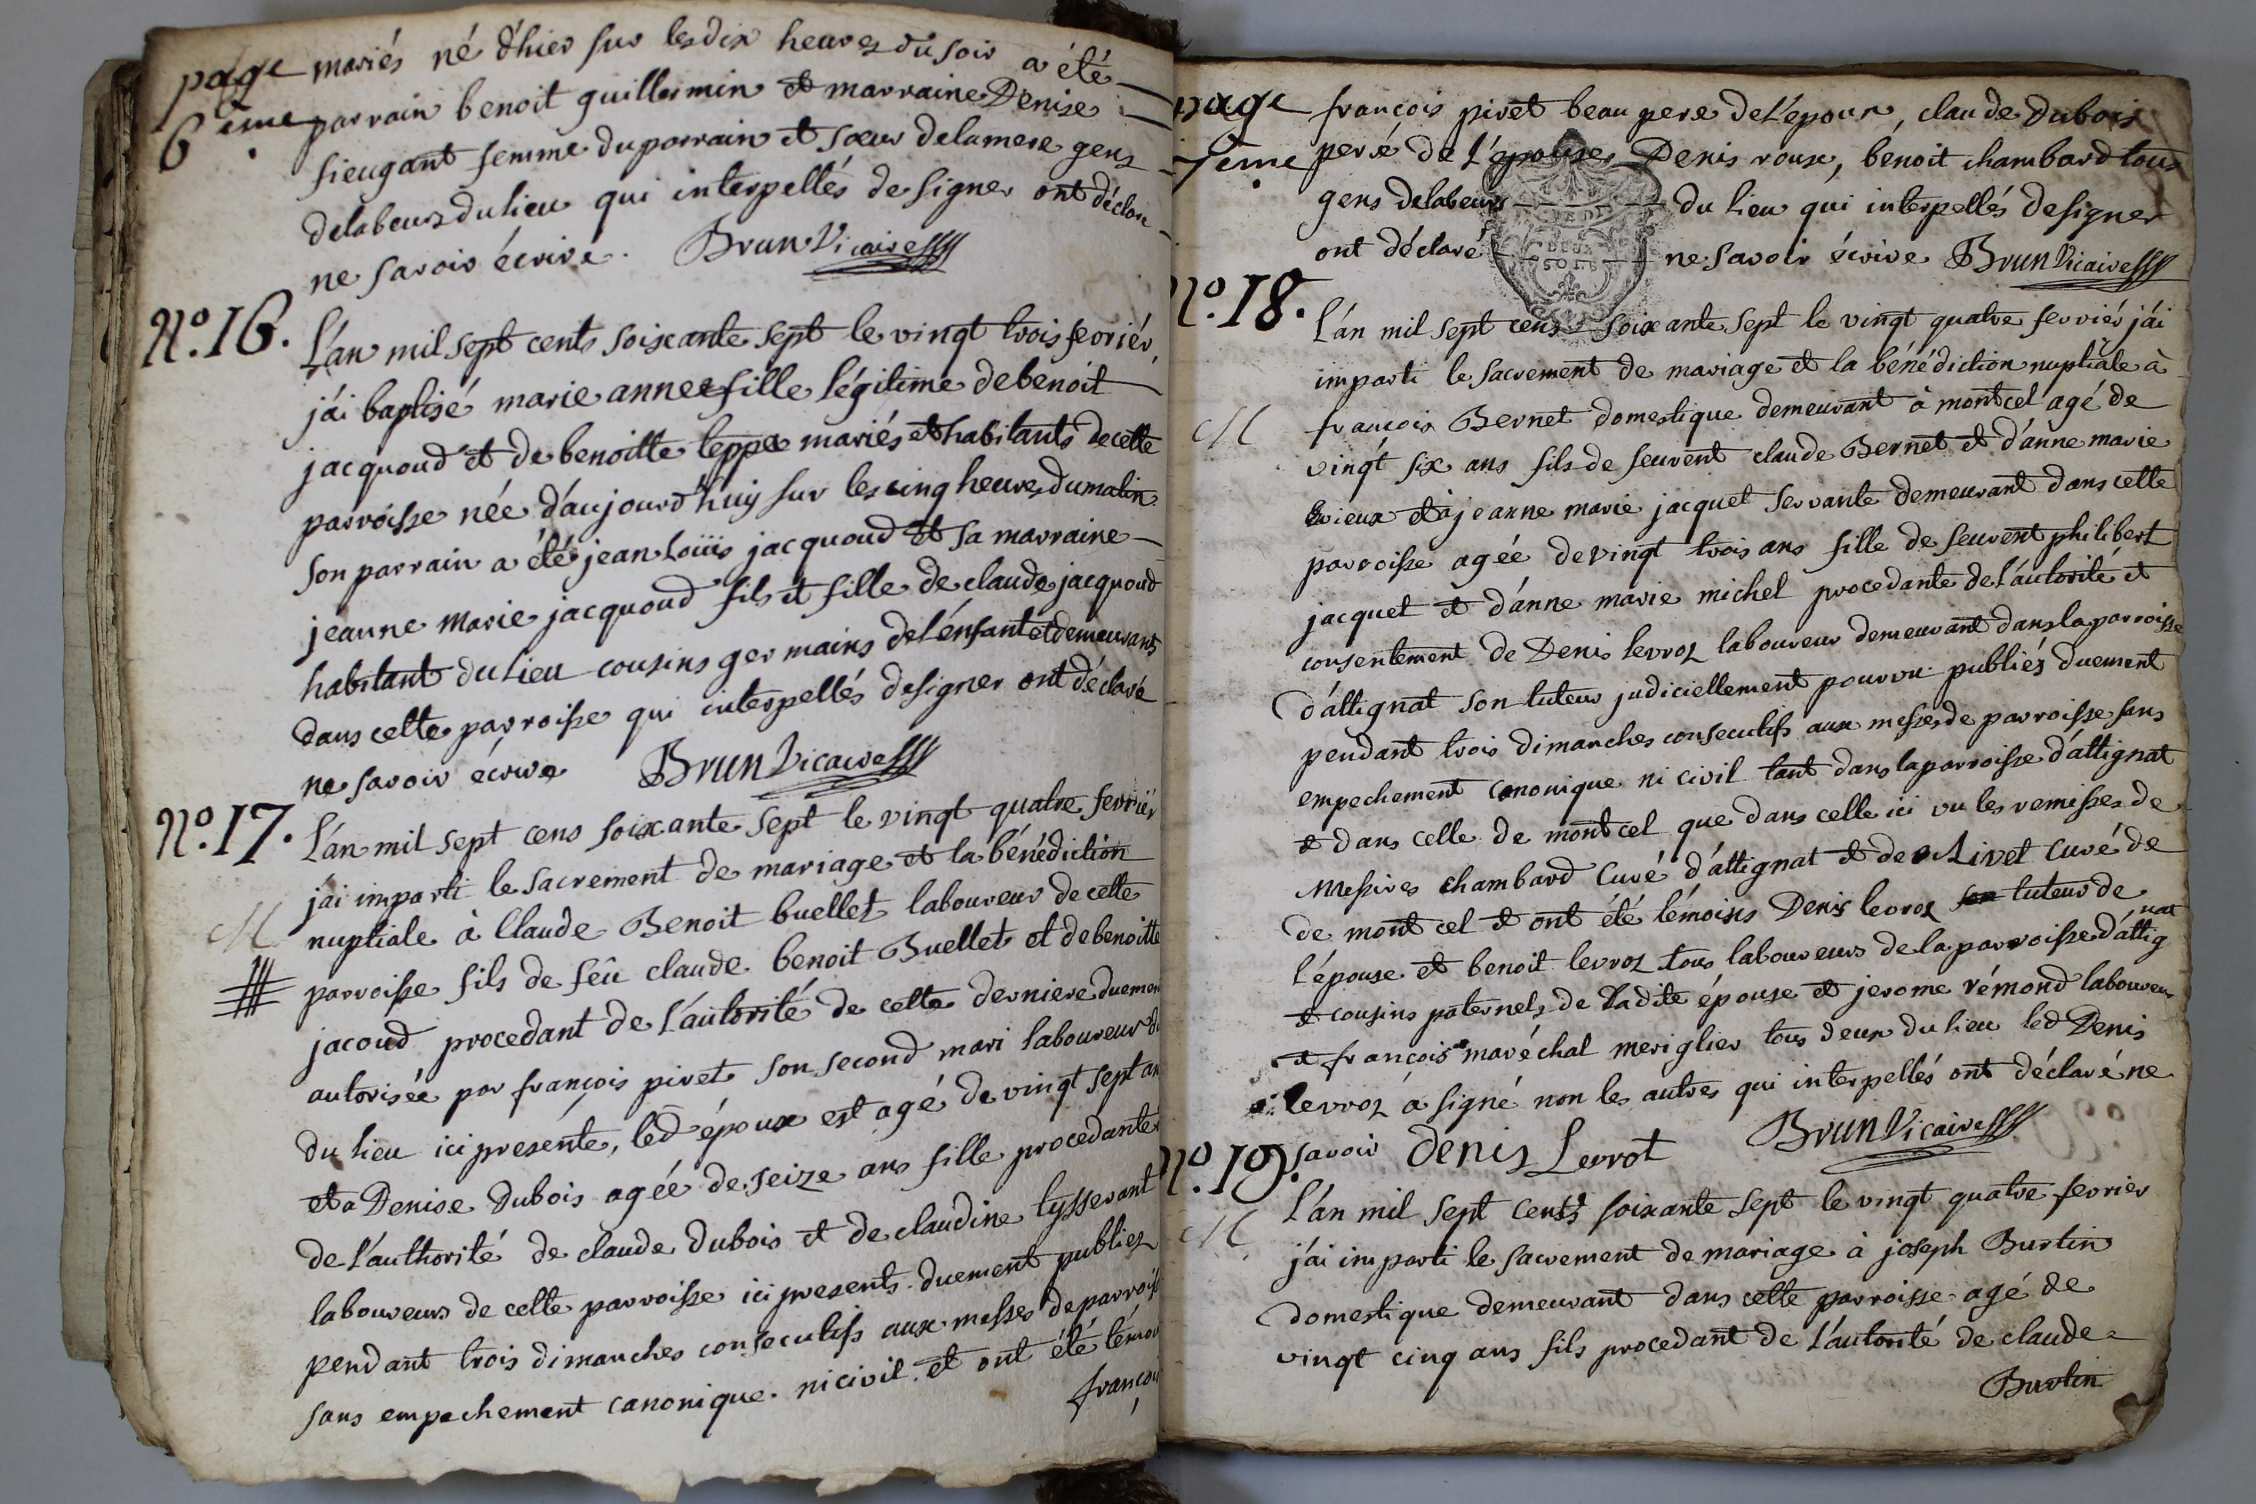 page mariés né d'hier sur les dix heures du soir a été
6ème parrain benoit guillermin et marraine Denise
fieugant femme du parrain et sœur de la mere gens
de labeurs du lieu qui interpellés de signer ont déclaré
ne savoir écrire. Brun Vicaire
N.o 16. L'an mil sept cents soixante sept le vingt trois fevrier
j'ai baptisé marie anne fille légitime de benoit
jacquoud et de benoitte teppe mariés et habitants de cette
parroisse née d'aujourd'huy sur les cinq heures du matin
son parrain a été jean Loüis jacquoud et sa marraine
jeanne marie jacquoud fils et fille de claude jacquoud
habitant du lieu cousins germains de l'énfant et demeurants
dans cette parroisse qui interpellés de signer ont déclaré
ne savoir écrire Brun Vicaire
N.o 17. L'an mil sept cens soixante sept le vingt quatre fevrier
j'ai imparti le sacrement de mariage et la bénédiction
M nuptiale à Claude Benoit buellet laboureur de cette
parroisse fils de feû claude benoit Buellet et de benoitte
jacoud procedant de l'áutorité de cette derniere duement
autorisée par françois pivet son second mari laboureur du
du lieu ici presente, led époux est agé de vingt sept ans
et a Denise Dubois agée de seize ans fille procedante
de l'authorité de claude dubois et de claudine tysserant
laboureurs de cette parroisse ici presents duement publiez
pendant trois dimanches consecutifs aux messes de parroisse
sans empechement canonique ni civil et ont été témoins
françois
page françois pivet beau pere de L'époux, claude Dubois
7eme peré de l'épouse, Denis roux, benoit chambard tous
gens de labeurs du lieu qui interpellés de signer
ont déclaré ne savoir écrire Brun Vicaire
DEUX
SOLS
N.o 18. L'án mil sept cens soixante sept le vingt quatre fevrier j'ái
imparti le sacrement de mariage et la bénédiction nuptiale à
M françois Bernet domestique demeurant à montcel agé de
vingt six ans fils de feu claude Bernet et d'anne marie
et à jeanne marie jacquet servante demeurant dans cette
parroisse agée de vingt trois ans fille de feu philibert
jacquet et d'ánne marie michel procedante de l'áutorité et
consentement de Denis levroz laboureur demeurant dans la parroisse
d'áttignat son tuteur judiciellement pourvu publiés duement
pendant trois dimanches consecutifs aux messes de parroisse sans
empechement canonique ni civil tant dans la parroisse d'áttignat
et dans celle de montcel que dans celle ici vu les remisses de
Messires chambard Curé d'áttignat et de Rivet Curé de
de mont cel et ont été témoins Denis levroz tuteur de
l'épouse et benoit levroz tous laboureurs de la parroisse d'áttignat
et cousins paternels de Ladite épouse et jerome rémond laboureur
et françois maréchal meriglier tous deux du lieu led Denis
levroz á signé non les autres qui interpellés ont déclaré ne
savoir denis Levrot Brun Vicaire
N.o 19. L'án mil sept cents soixante sept le vingt quatre fevrier
M j'ái imparti le sacrement de mariage à joseph Burtin
domestique demeurant dans cette parroisse agé de
vingt cinq ans fils procedant de L'áutorité de claude
Burtin